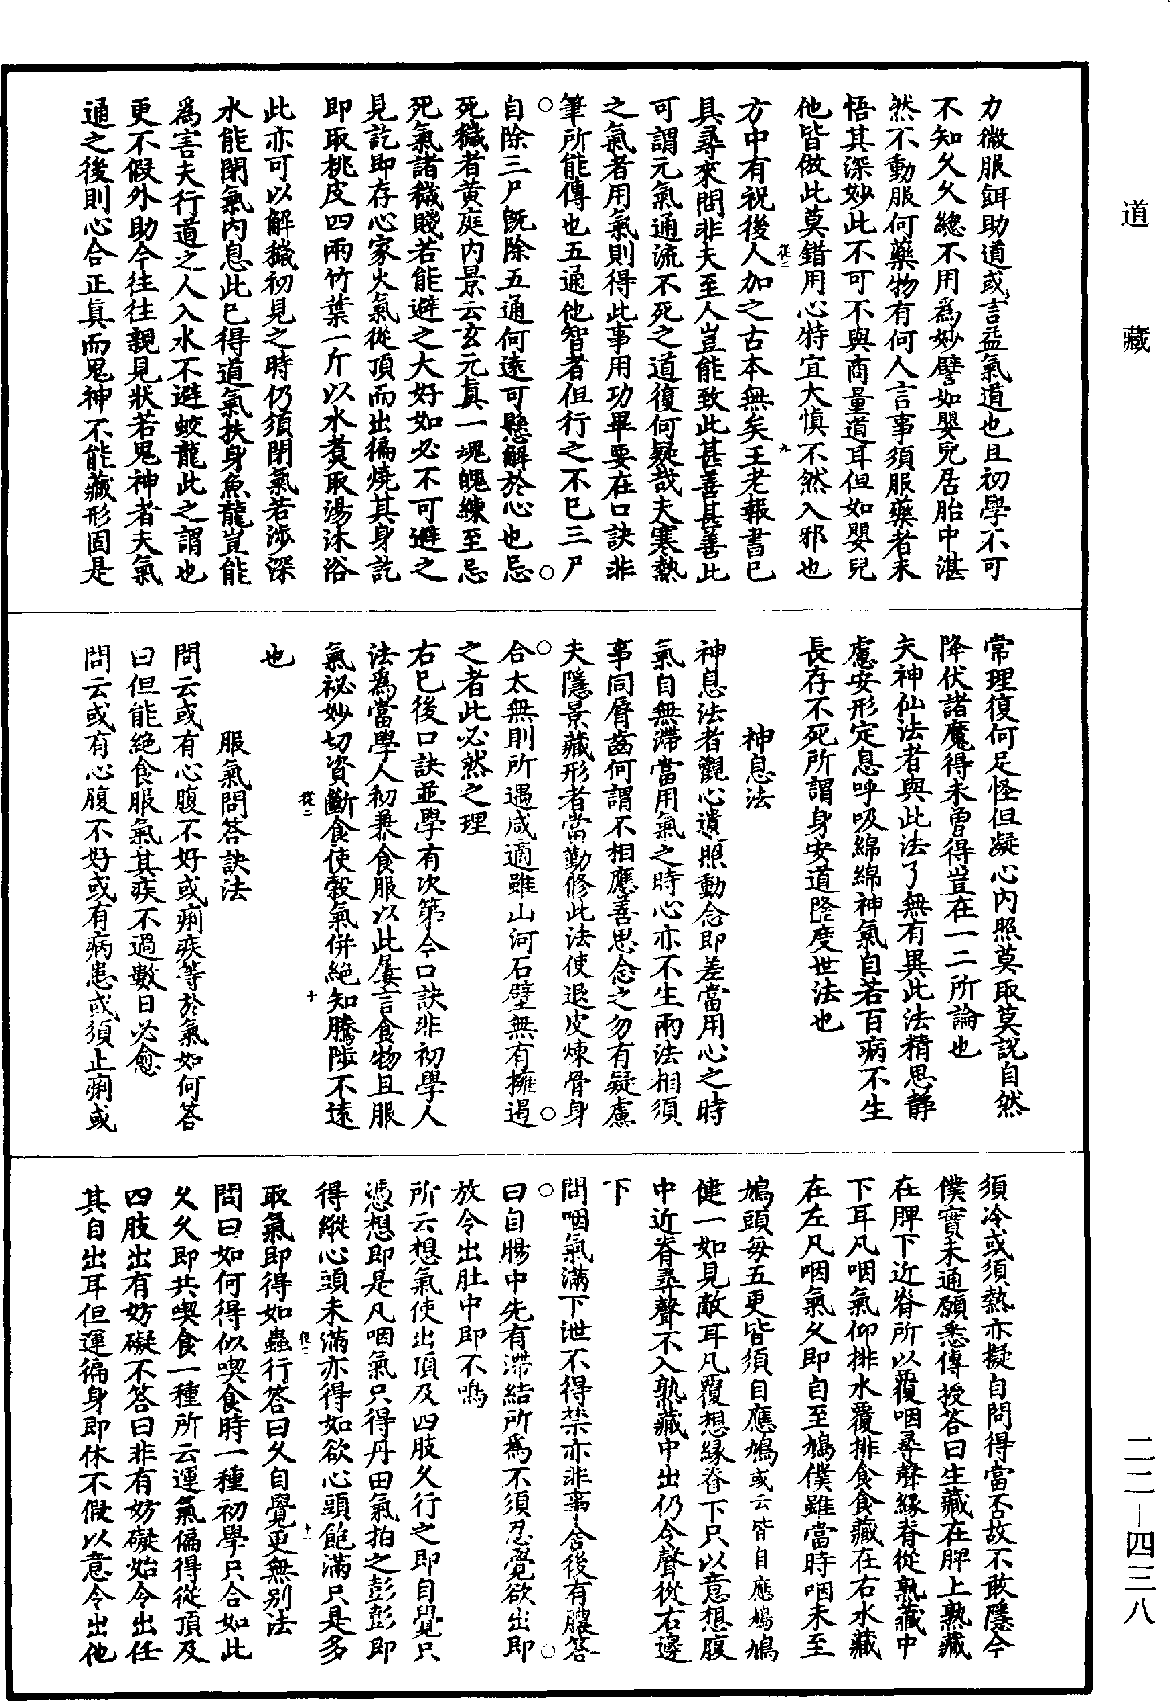 道藏
力微服餌助道或言益氣道也且初學不可
不知久久總不用爲妙譬如嬰兒居胎中湛
然不動服何藥物有何人言事須服藥者未
悟其深妙此不可不與商量道耳但如嬰兒
他皆倣此莫錯用心特宜大慎不然入邪也
方中有祝後人加之古本無矣王老報書已
具尋來問非夫至人豈能致此甚善甚善此
可謂元氣通流不死之道復何疑哉夫寒熱
之氣者用氣則得此事用功畢要在口訣非
筆所能傳也五通他智者但行之不已三尸
自除三尸既除五通何遠可懸解於心也忌
死穢者黄庭内景云玄元真一魂魄練至忌
死氣諸穢賤若能避之大好如必不可避之
見訖即存心家火氣從頂而出徧燒其身訖
即取桃皮四兩竹葉一斤以水煑取湯沐浴
此亦可以解穢初見之時仍須閉氣若涉深
水能閉氣内息此已得道氣扶身魚龍豈能
爲害夫行道之人入水不避蛟龍此之謂也
更不假外助今往往親見狀若鬼神者夫氣
通之後則心合正真而鬼神不能藏形固是
常理復何足怪但凝心内照莫取莫説自然
降伏諸魔得未曾得豈在一二所論也
夫神仙法者與此法了無有異此法精思靜
慮安形定息呼吸綿綿神氣自若百病不生
長存不死所謂身安道隆度世法也
神息法
神息法者觀心遺照動念即差當用心之時
氣自無滯當用氣之時心亦不生兩法相須
事同脣齒何謂不相應善思念之勿有疑慮
夫隱景藏形者當勤修此法使退皮煉骨身
合太無則所遇咸適雖山河石壁無有擁遏
之者此必然之理
右已後口訣並學有次第今口訣非初學人
法爲當學人初兼食服以此屢言食物且服
氣祕妙切資斷食使穀氣併絶知騰陟不遠
也
服氣問答訣法
問云或有心腹不好或痢疾等於氣如何答
曰但能絶食服氣其疾不過數日必愈
問云或有心腹不好或有病患或須止痢或
須冷或須熱亦擬自問得當否故不敢隱今
僕實未通願悉傳授答曰生藏在脾上熟藏
在脾下近脊所以覆咽尋聲緣脊從熟藏中
下耳凡咽氣仰排水覆排食食藏在右水藏
在左凡咽氣久即自至鳩僕雖當時咽未至
鳩頭每五更皆須自應鳩或云皆自應鳩鳩
健一如見敵耳凡覆想緣脊下只以意想腹
中近脊尋聲不入熟藏中出仍令聲從右邊
下
問咽氣滿下泄不得禁亦非事舍後有膿答
曰自腸中先有滯結所爲不須忍覺欲出即
放令出肚中即不鳴
所云想氣使出頂及四肢久行之即自覺只
憑想即是凡咽氣只得丹田氣拍之彭彭即
得縱心頭未滿亦得如欲心頭飽滿只是多
取氣即得如蟲行答曰久自覺更無别法
問曰如何得似喫食時一種初學只合如此
久久即共喫食一種所云運氣偏得從頂及
四肢出有妨礙不答曰非有妨礙始令出任
其自出耳但運徧身即休不假以意令出他
二二—四三八